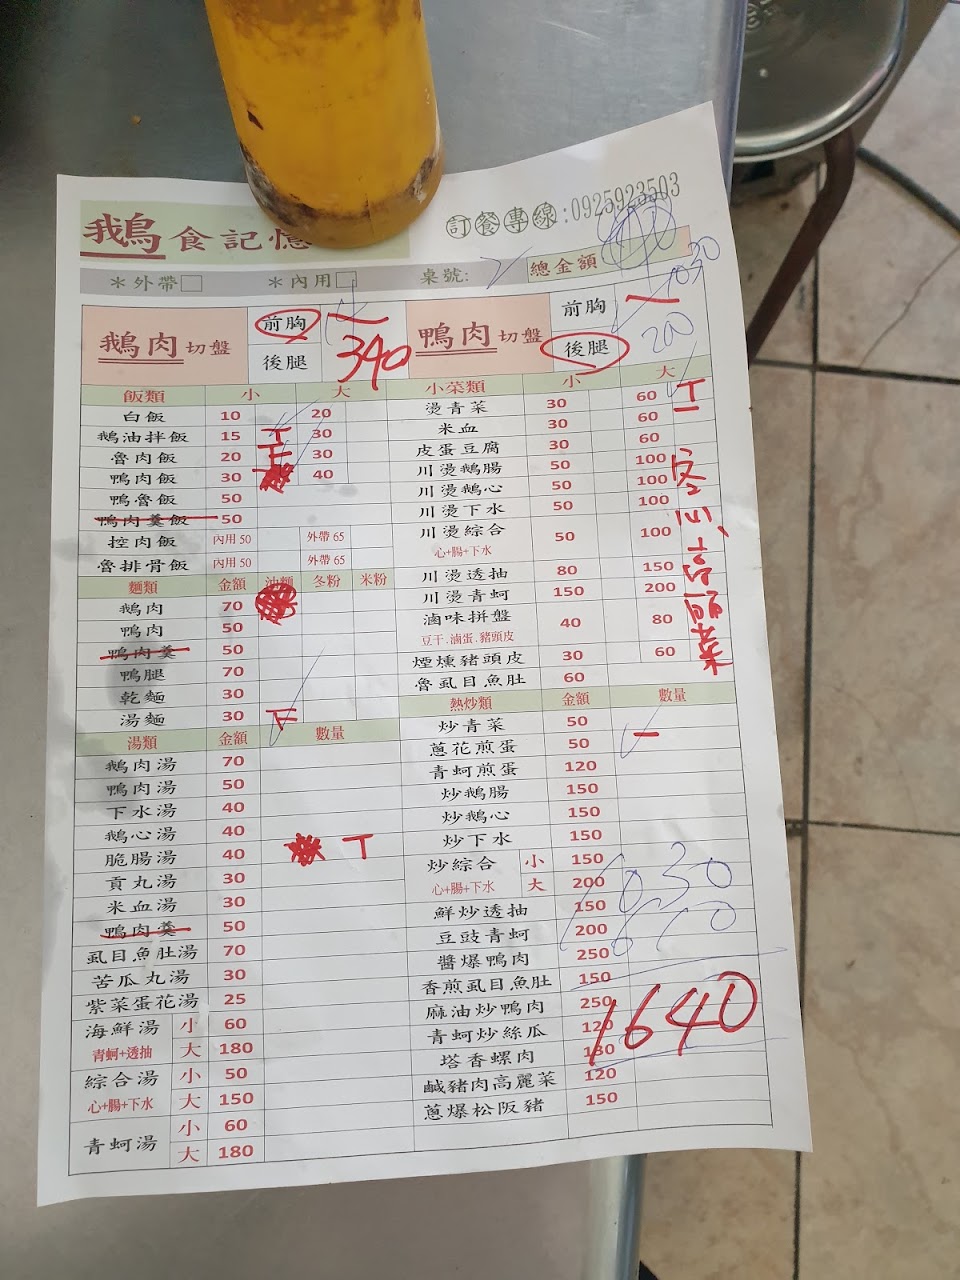 鵝食記憶
訂餐專線:0925923503
＊外帶□ ＊內用□ 桌號: 總金額
1030
鵝肉切盤 前胸 後腿 340
鴨肉切盤 前胸 一 後腿 20
飯類 小 大
白飯 10 20
鵝油拌飯 15 T 30
魯肉飯 20 下 30
鴨肉飯 30 40
鴨魯飯 50
鴨肉羹飯 50
控肉飯 內用 50 外帶 65
魯排骨飯 內用 50 外帶 65
麵類 金額 油麵 冬粉 米粉
鵝肉 70
鴨肉 50
鴨肉羹 50
鴨腿 70
乾麵 30
湯麵 30 下
湯類 金額 數量
鵝肉湯 70
鴨肉湯 50
下水湯 40
鵝心湯 40
脆腸湯 40 T
貢丸湯 30
米血湯 30
鴨肉羹 50
虱目魚肚湯 70
苦瓜丸湯 30
紫菜蛋花湯 25
海鮮湯 小 60
青蚵+透抽 大 180
綜合湯 小 50
心+腸+下水 大 150
青蚵湯 小 60
大 180
小菜類 小 大
燙青菜 30 60 T
米血 30 60 一
皮蛋豆腐 30 60
川燙鵝腸 50 100
川燙鵝心 50 100
川燙下水 50 100
川燙綜合 50 100
心+腸+下水
川燙透抽 80 150
川燙青蚵 150 200
滷味拼盤 40 80
豆干.滷蛋.豬頭皮
煙燻豬頭皮 30 60
魯虱目魚肚 60
熱炒類 金額 數量
炒青菜 50 一
蔥花煎蛋 50
青蚵煎蛋 120
炒鵝腸 150
炒鵝心 150
炒下水 150
炒綜合 小 150
心+腸+下水 大 200
鮮炒透抽 150
豆豉青蚵 200
醬爆鴨肉 250
香煎虱目魚肚 150
麻油炒鴨肉 250
青蚵炒絲瓜 120
塔香螺肉 180
鹹豬肉高麗菜 120
蔥爆松阪豬 150
1030
610
1640